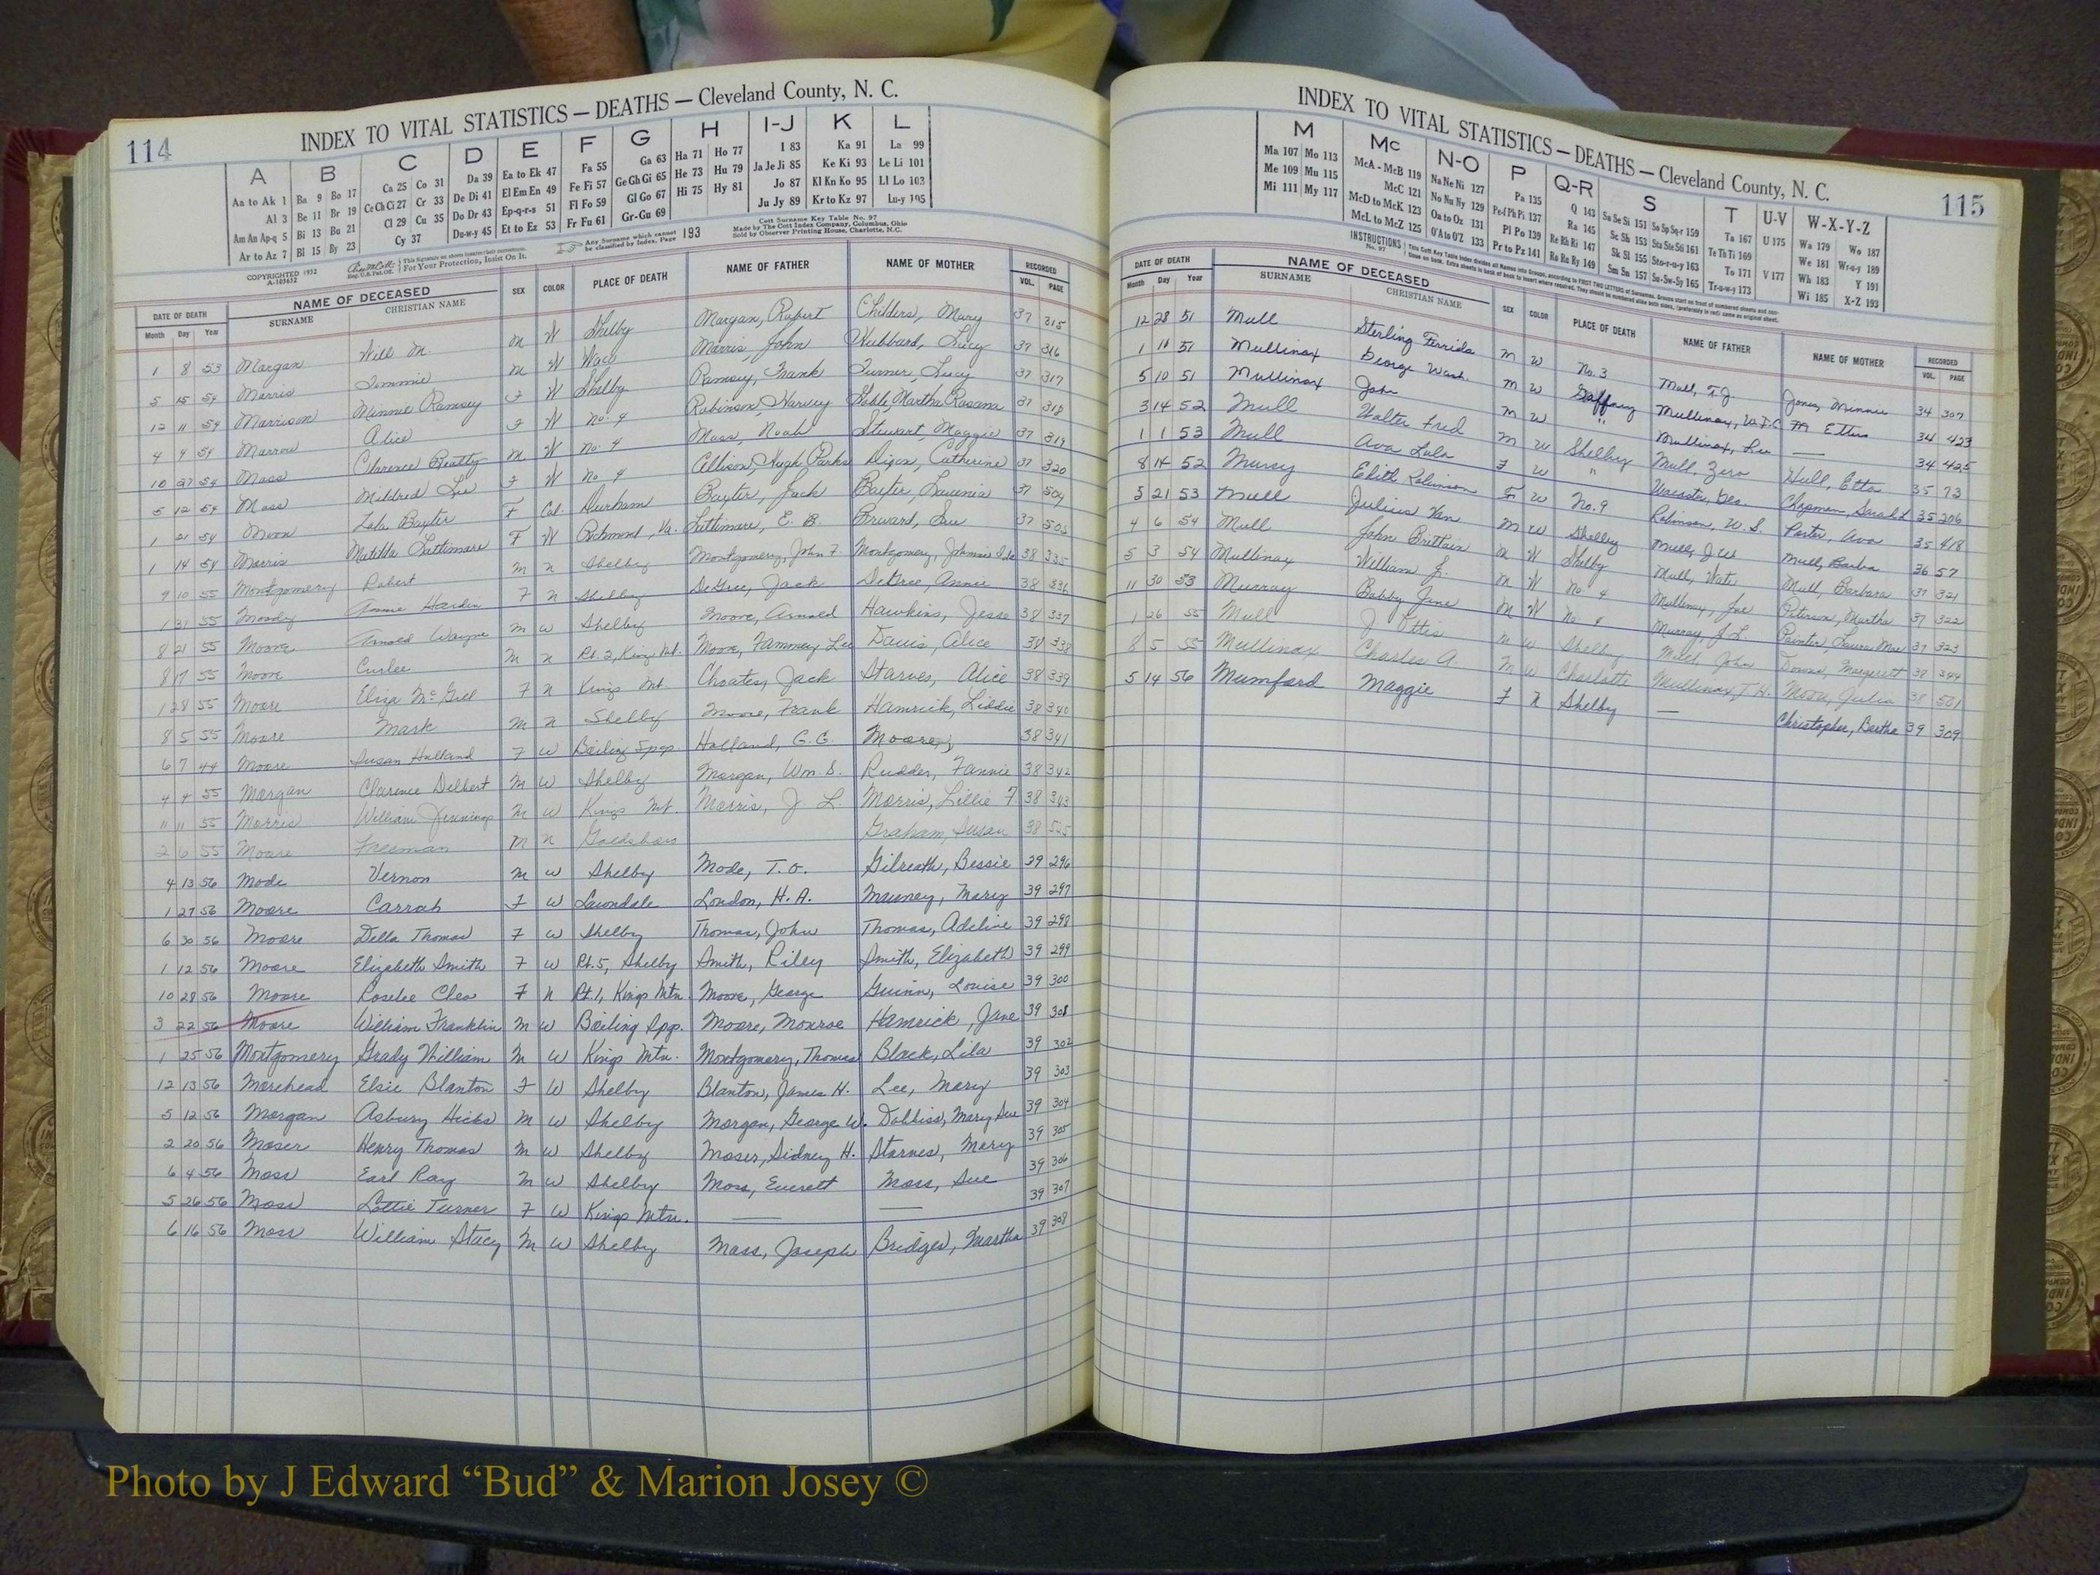 114
INDEX TO VITAL STATISTICS — DEATHS — Cleveland County, N. C.
A B C D E F G H I-J K L
Aa to Ak 1 Ba 9 Bo 17 Ca 25 Co 31 Da 39 Ea to Ek 47 Fa 55 Ga 63 Ha 71 Ho 77 I 83 Ka 91 La 99
Al 3 Be 11 Br 19 Ce Ch Ci 27 Cr 33 De Di 41 El Em En 49 Fe Fi 57 Ge Gh Gi 65 He 73 Hu 79 Ja Je Ji 85 Ke Ki 93 Le Li 101
Am An Ap-q 5 Bi 13 Bu 21 Cl 29 Cu 35 Do Dr 43 Ep-q-r-s 51 Fl Fo 59 Gl Go 67 Hi 75 Hy 81 Jo 87 Kl Kn Ko 95 Ll Lo 103
Ar to Az 7 Bl 15 By 23 Cy 37 Du-w-y 45 Et to Ez 53 Fr Fu 61 Gr-Gu 69 Ju Jy 89 Kr to Kz 97 Lu-y 105
COPYRIGHTED 1932
For Your Protection, Insist On It.
Any Surname which cannot be classified by Index, Page 193
Cott Surname Key Table No. 97
Made by The Cott Index Company, Columbus, Ohio
Sold by Observer Printing House, Charlotte, N.C.
DATE OF DEATH Month Day Year NAME OF DECEASED SURNAME CHRISTIAN NAME SEX COLOR PLACE OF DEATH NAME OF FATHER NAME OF MOTHER RECORDED VOL. PAGE
1 8 53 Morgan Will M M W Shelby Morgan, Robert Childers, Mary 37 315
5 15 54 Morris Tommie M W Waco Morris, John Hubbard, Lucy 37 316
12 11 54 Morrison Minnie Ramsey F W Shelby Ramsey, Frank Turner, Lucy 37 317
4 9 54 Morrow Alice F W No. 4 Robinson, Harvey Martha Roxana 37 318
10 27 54 Moss Clarence Beatty M W No. 4 Moss, Noah Stewart, Maggie 37 319
5 12 54 Moss Mildred Lee F W No. 4 Allison, Hugh Parks Dixon, Catherine 37 320
1 21 54 Moon Lola Baxter F Col. Durham Baxter, Jack Baxter, Lavenia 37 504
1 14 54 Morris Matilda Lattimore F W Richmond, Va. Lattimore, E. B. 37 505
9 10 55 Montgomery Robert M N Shelby Montgomery, John F. Montgomery, 38 335
1 31 55 Moody Annie Hardin F N Shelby DeGree, Jack DeGree, Annie 38 336
8 21 55 Moore Arnold Wayne M W Shelby Moore, Arnold Hawkins, Jesse 38 337
8 17 55 Moore Curlee M N Rt. 2, Kings Mt. Moore, Lee Davis, Alice 38 338
1 28 55 Moore Eliza McGill F N Kings Mt. Choates, Jack Starnes, Alice 38 339
8 5 55 Moore Mark M N Shelby Moore, Frank Hamrick, Liddie 38 340
6 7 44 Moore Susan Holland F W Boiling Spgs. Holland, G.G. Moore, 38 341
4 4 55 Morgan Clarence Delbert M W Shelby Morgan, Wm. S. Rudder, Fannie 38 342
11 11 55 Morris William Jennings M W Kings Mt. Morris, J. L. Morris, Lillie F 38 343
2 6 55 Moore Freeman M N Goldsboro Graham, Susan 38 525
4 13 56 Mode Vernon M W Shelby Mode, T. O. Gilreath, Bessie 39 296
1 27 56 Moore Carrah F W Lawndale London, H. A. Mauney, Mary 39 297
6 30 56 Moore Della Thomas F W Shelby Thomas, John Thomas, Adeline 39 298
1 12 56 Moore Elizabeth Smith F W Rt. 5, Shelby Smith, Riley Smith, Elizabeth 39 299
10 28 56 Moore Roselee Cleo F N Rt. 1, Kings Mtn. Moore, George Guinn, Louise 39 300
3 22 56 Moore William Franklin M W Boiling Spgs. Moore, Monroe Hamrick, Jane 39 301
1 25 56 Montgomery Grady William M W Kings Mtn. Montgomery, Thomas Black, Lila 39 302
12 13 56 Morehead Elsie Blanton F W Shelby Blanton, James H. Lee, Mary 39 303
5 12 56 Morgan Asbury Hicks M W Shelby Morgan, George W. Dobbins, Mary Sue 39 304
2 20 56 Moser Henry Thomas M W Shelby Moser, Sidney H. Starnes, Mary 39 305
6 4 56 Moss Earl Ray M W Shelby Moss, Everett Moss, Sue 39 306
5 26 56 Moss Lottie Turner F W Kings Mtn. — — 39 307
6 16 56 Moss William Stacy M W Shelby Moss, Joseph Bridges, Martha 39 308
115
INDEX TO VITAL STATISTICS — DEATHS — Cleveland County, N. C.
M Mc N-O P Q-R S T U-V W-X-Y-Z
Ma 107 Mo 113 McA - McB 119 Na Ne Ni 127 Pa 135 Q 143 Sa Se Si 151 So Sp Sq-r 159 Ta 167 U 175 Wa 179 Wo 187
Me 109 Mu 115 McC 121 No Nu Ny 129 Pe-f Ph Pi 137 Ra 145 Sc Sh 153 Sta Ste Sti 161 Te Th Ti 169 We 181 Wr-u-y 189
Mi 111 My 117 McD to McK 123 Oa to Oz 131 Pl Po 139 Re Rh Ri 147 Sk Sl 155 Sto-r-u-y 163 To 171 V 177 Wh 183 Y 191
McL to McZ 125 O'A to O'Z 133 Pr to Pz 141 Ro Ru Ry 149 Sm Sn 157 Su-Sw-Sy 165 Tr-u-w-y 173 Wi 185 X-Z 193
DATE OF DEATH Month Day Year NAME OF DECEASED SURNAME CHRISTIAN NAME SEX COLOR PLACE OF DEATH NAME OF FATHER NAME OF MOTHER RECORDED VOL. PAGE
12 28 51 Mull Sterling Ferrida M W No. 3 Mull, T. J. Jones, Minnie 34 307
1 11 51 Mullinax George Wash. M W Gaffney Mullinax, W.T.C. Etters 34 423
5 10 51 Mullinax John M W " Mullinax, Lee — 34 425
3 14 52 Mull Walter Fred M W Shelby Mull, Zero Hull, Etta 35 73
1 1 53 Mull Ava Lula F W " Geo. Chapman, Sarah L 35 206
8 14 52 Muray Edith Robinson F W No. 9 Robinson, W. S. Porter, Ava 35 418
3 21 53 Mull Julius Van M W Shelby Mull, J.W. Mull, Barba 36 57
4 6 54 Mull John Brittain M W Shelby Mull, Wate Mull, Barbara 37 321
5 3 54 Mullinax William J. M W No. 4 Mullinax, Joe Peterson, Martha 37 322
11 30 53 Murray Bobby Jene M W No. 4 Murray, J L. Painter, Laura Mae 37 323
1 26 55 Mull J Ottis M W Shelby Mull, John Downs, Margarett 38 344
8 5 55 Mullinax Charles A. M W Charlotte Mullinax, T. H. Moss, Julia 38 501
5 14 56 Mumford Maggie F N Shelby — Christopher, Bertha 39 309
Photo by J Edward “Bud” & Marion Josey ©